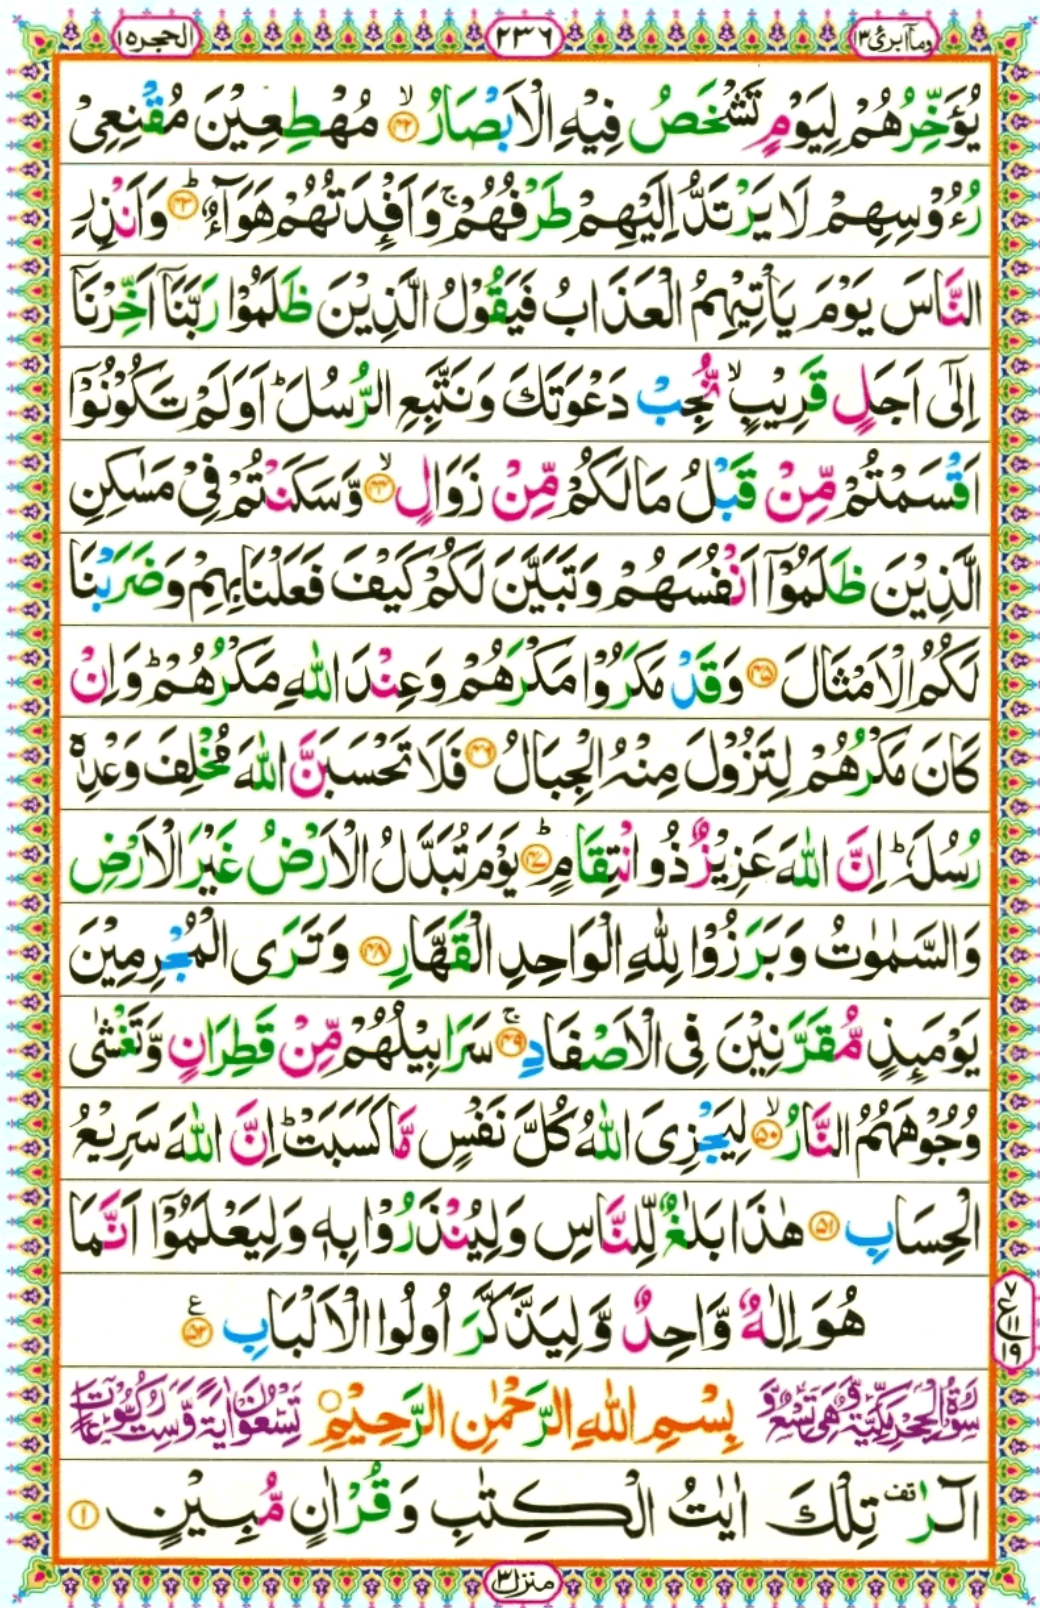 وما ابرئ ١٣
٢٣٦
الحجر ١٥
يُؤَخِّرُهُمْ لِيَوْمٍ تَشْخَصُ فِيْهِ الْاَبْصَارُ ۙ﴿٤٢﴾ مُهْطِعِيْنَ مُقْنِعِىْ
رُءُوْسِهِمْ لَا يَرْتَدُّ اِلَيْهِمْ طَرْفُهُمْ ۚ وَاَفْـِٕدَتُهُمْ هَوَآءٌ ؕ﴿٤٣﴾ وَاَنْذِرِ
النَّاسَ يَوْمَ يَاْتِيْهِمُ الْعَذَابُ فَيَقُوْلُ الَّذِيْنَ ظَلَمُوْا رَبَّنَاۤ اَخِّرْنَاۤ
اِلٰٓى اَجَلٍ قَرِيْبٍ ۙ نُّجِبْ دَعْوَتَكَ وَنَتَّبِعِ الرُّسُلَ ؕ اَوَلَمْ تَكُوْنُوْۤا
اَقْسَمْتُمْ مِّنْ قَبْلُ مَا لَكُمْ مِّنْ زَوَالٍ ۙ﴿٤٤﴾ وَّسَكَنْتُمْ فِىْ مَسٰكِنِ
الَّذِيْنَ ظَلَمُوْۤا اَنْفُسَهُمْ وَتَبَيَّنَ لَكُمْ كَيْفَ فَعَلْنَا بِهِمْ وَضَرَبْنَا
لَكُمُ الْاَمْثَالَ ﴿٤٥﴾ وَقَدْ مَكَرُوْا مَكْرَهُمْ وَعِنْدَ اللّٰهِ مَكْرُهُمْ ؕ وَاِنْ
كَانَ مَكْرُهُمْ لِتَزُوْلَ مِنْهُ الْجِبَالُ ﴿٤٦﴾ فَلَا تَحْسَبَنَّ اللّٰهَ مُخْلِفَ وَعْدِهٖ
رُسُلَهٗ ؕ اِنَّ اللّٰهَ عَزِيْزٌ ذُو انْتِقَامٍ ؕ﴿٤٧﴾ يَوْمَ تُبَدَّلُ الْاَرْضُ غَيْرَ الْاَرْضِ
وَالسَّمٰوٰتُ وَبَرَزُوْا لِلّٰهِ الْوَاحِدِ الْقَهَّارِ ﴿٤٨﴾ وَتَرَى الْمُجْرِمِيْنَ
يَوْمَئِذٍ مُّقَرَّنِيْنَ فِى الْاَصْفَادِ ۚ﴿٤٩﴾ سَرَابِيْلُهُمْ مِّنْ قَطِرَانٍ وَّتَغْشٰى
وُجُوْهَهُمُ النَّارُ ۙ﴿٥٠﴾ لِيَجْزِىَ اللّٰهُ كُلَّ نَفْسٍ مَّا كَسَبَتْ ؕ اِنَّ اللّٰهَ سَرِيْعُ
الْحِسَابِ ﴿٥١﴾ هٰذَا بَلٰغٌ لِّلنَّاسِ وَلِيُنْذَرُوْا بِهٖ وَلِيَعْلَمُوْۤا اَنَّمَا
هُوَ اِلٰهٌ وَّاحِدٌ وَّلِيَذَّكَّرَ اُولُوا الْاَلْبَابِ ﴿٥٢﴾ ع
ع ٧ ١١ ١٩
سُوْرَةُ الْحِجْرِ مَكِّيَّةٌ وَّهِىَ تِسْعٌ وَّ بِسْمِ اللّٰهِ الرَّحْمٰنِ الرَّحِيْمِ تِسْعُوْنَ اٰيَةً وَّسِتُّ رُكُوْعَاتٍ
الٓرٰ ۟ تِلْكَ اٰيٰتُ الْكِتٰبِ وَقُرْاٰنٍ مُّبِيْنٍ ﴿١﴾
منزل ٣